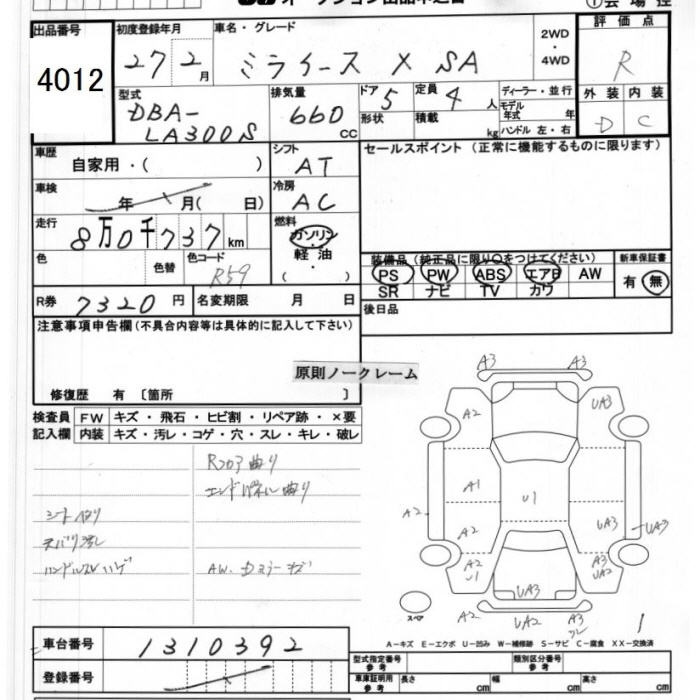 出品番号
4012
初度登録年月
27 2 月
車名・グレード
ミライース X SA
2WD
・
4WD
評価点
R
外装 内装
D C
型式
DBA-
LA300S
排気量
660 CC
ドア 5
形状
定員 4 人
積載 kg
ディーラー・並行
モデル
年式 年
ハンドル 左・右
車歴
自家用・( )
シフト
AT
セールスポイント (正常に機能するものに限ります)
車検
年 月( 日)
冷房
AC
走行
8万0千737km
燃料
ガソリン
軽油
( )
色
色替
色コード
R59
装備品 (純正品に限り○をつけてください)
PS PW ABS エアB AW
SR ナビ TV カワ
新車保証書
有・無
R券 7320 円
名変期限 月 日
後日品
注意事項申告欄(不具合内容等は具体的に記入して下さい)
原則ノークレーム
修復歴 有 〔箇所 〕
検査員
記入欄
FW キズ・飛石・ヒビ割・リペア跡・×要
内装 キズ・汚レ・コゲ・穴・スレ・キレ・破レ
Rフロア曲り
エンドパネル曲り
ハンドルスレハゲ
A3 A3
A2 UA3
A1
A2 U1 UA3 UA3
A2
A2
U1
A3
UA2
UA3
スペア
A2 UA2 A3
A－キズ E－エクボ U－凹み W－補修跡 S－サビ C－腐食 XX－交換済
車台番号 1310392
登録番号
型式指定番号
参考
類別区分番号
参考
車庫証明用
参考
長さ cm 幅 cm 高さ cm